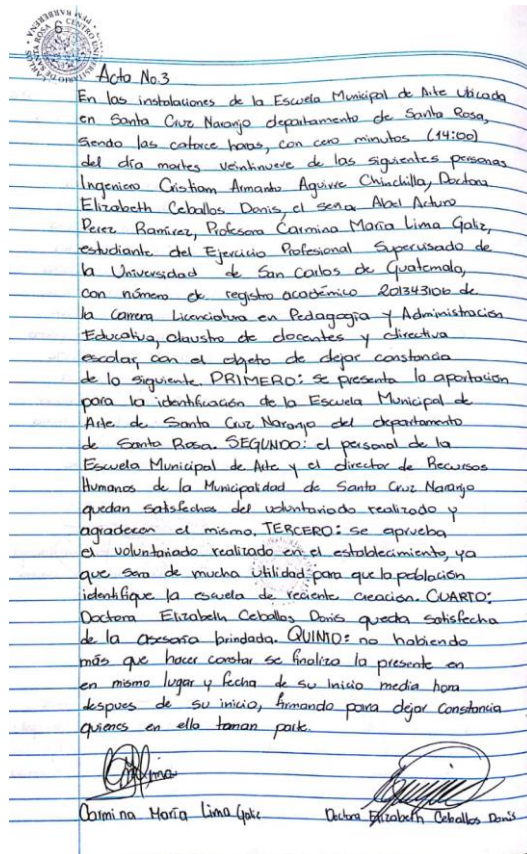 6
Acta No.3
En las instalaciones de la Escuela Municipal de Arte Ubicada
en Santa Cruz Naranjo departamento de Santa Rosa,
siendo las catorce horas, con cero minutos (14:00)
del día martes veintinueve de las siguientes personas
Ingeniero Cristiam Armando Aguirre Chinchilla, Doctora
Elizabeth Ceballos Donis, el señor Abel Arturo
Perez Ramírez, Profesora Carmina María Lima Galiz,
estudiante del Ejercicio Profesional Supervisado de
la Universidad de San Carlos de Guatemala,
con número de registro académico 201343106 de
la carrera Licenciatura en Pedagogía y Administración
Educativa, claustro de docentes y directiva
escolar, con el objeto de dejar constancia
de lo siguiente. PRIMERO: se presenta la aportación
para la identificación de la Escuela Municipal de
Arte de Santa Cruz Naranjo del departamento
de Santa Rosa. SEGUNDO: el personal de la
Escuela Municipal de Arte y el director de Recursos
Humanos de la Municipalidad de Santa Cruz Naranjo
quedan satisfechos del voluntariado realizado y
agradecen el mismo. TERCERO: se aprueba
el voluntariado realizado en el establecimiento, ya
que sera de mucha utilidad para que la población
identifique la escuela de reciente creación. CUARTO:
Doctora Elizabeth Ceballos Donis queda satisfecha
de la asesoria brindada. QUINTO: no habiendo
más que hacer constar se finaliza la presente en
en mismo lugar y fecha de su inicio media hora
despues de su inicio, firmando para dejar constancia
quienes en ella toman parte.
Carmina María Lima Galiz
Doctora Elizabeth Ceballos Donis